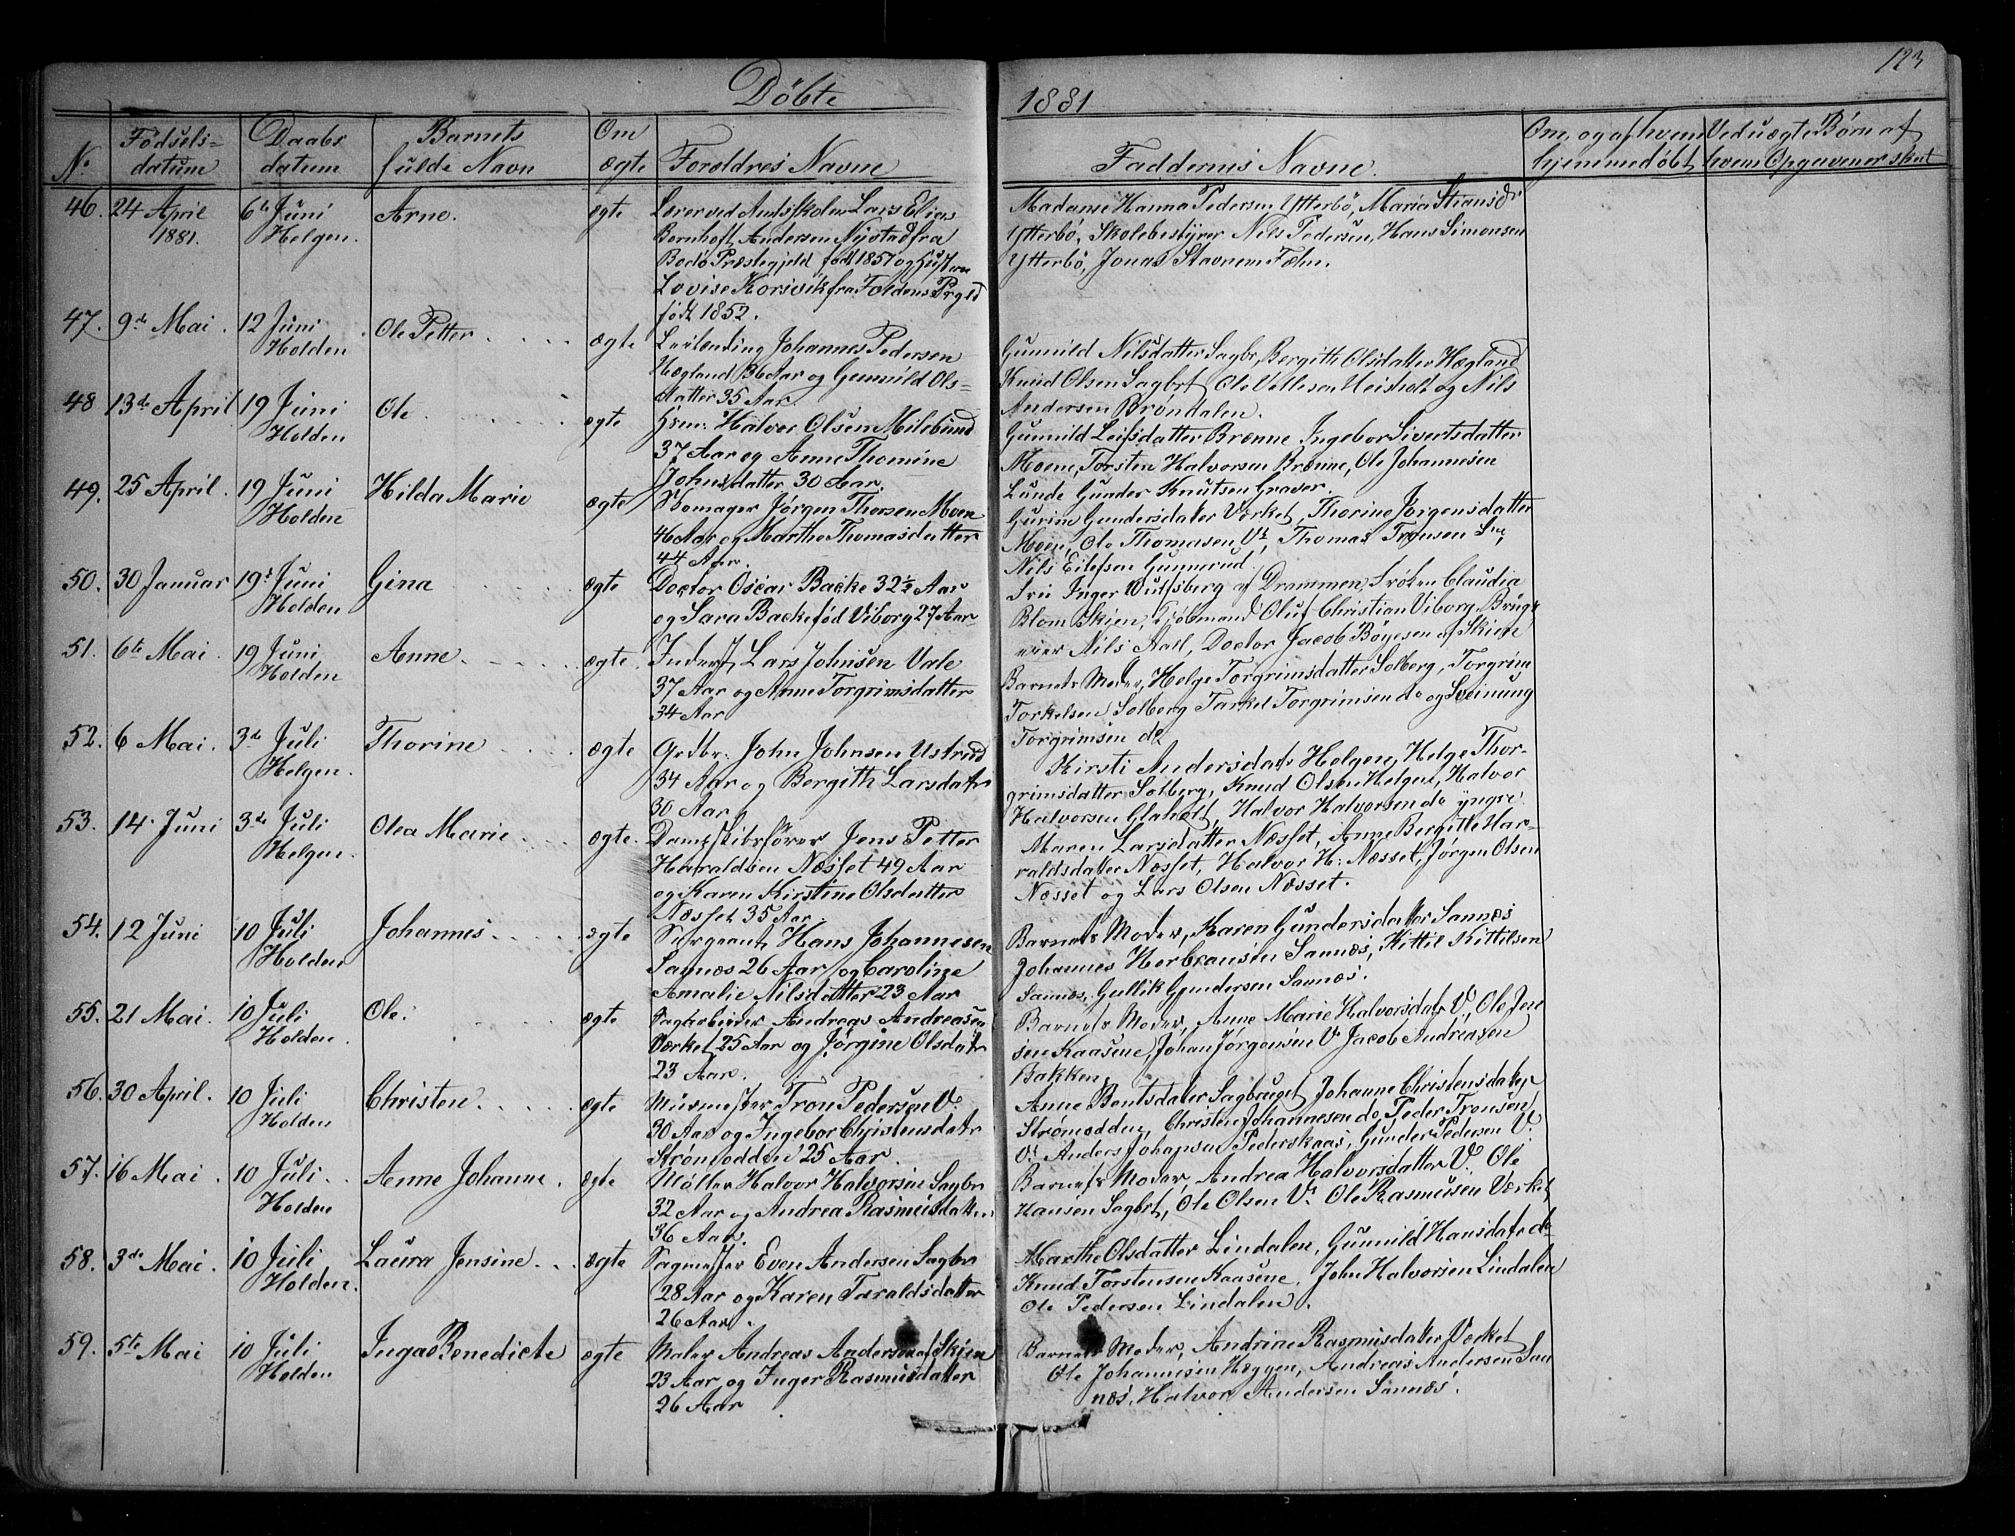 123
Døbte 1881
No
Fødsels-
datum
Daabs
datum
Barnets
fulde Navn
Om
ægte
Foreldres Navne
Faddernes Navne.
Om, og af hvem
hjemmedøbt
Ved uægte Børn af
hvem Opgaven er skeet
46. 24 April 6te Juni Arne. ægte Lærer ved Amtsskolen Lars Elias
1881. Helgen. Bernhoft Andersen Nystad fra
Bodø Præstegjeld født 1857 og Hustru
Lovise Korsvik fra Foldens Prgld
født 1852.
Madame Hanna Pedersen Ytterbø, Maria Stiansd.
Ytterbø, Skolebestyrer Nils Pedersen, Hans Simonsen
Ytterbø, Jonas Stavnem Fæhn.
47. 9de Mai. 12 Juni Ole Petter ægte Leilending Johannes Pedersen
Holden Hægland 36 Aar og Gunnild Ols-
datter 35 Aar.
Gunnild Nilsdatter Sagbr, Bergith Olsdatter Hægland
Knud Olsen Sagbrt Ole Vetlesen og Nils
Andersen Brøndalen.
48 13de April 19 Juni Ole ægte Hsm. Halvor Olsen Milebund
Holden 37 Aar og Anne Thomine
Johnsdatter 30 Aar.
Gunnild Leifsdatter Brenne Ingebor Sivertsdatter
Moene, Torsten Halvorsen Brenne, Ole Johannesen
Lunde Gunder Knutsen Graver.
49. 25 April. 19 Juni Hilda Marie ægte Skomager Jørgen Thorsen Moen
Holden 46 Aar og Marthe Thomasdatter
44 Aar.
Gurine Gundersdater Værket, Thorine Jørgensdatter
Moen, Ole Thomasen V., Thomas Tronsen
Nils Eilefsen Gunnerud.
50. 30 Januar 19de Juni Gina ægte Doctor Oscar Backe 32½ Aar
Holden og Sara Backe født Viborg 27 Aar
Fru Inger Wulfsberg af Drammen, Frøken Claudia
Blom Skien, Kjøbmand Oluf Christian Viborg, Brugs
eier Nils Aall, Doctor Jacob Bøyesen af Skien
51. 6te Mai. 19 Juni Anne ægte. Inderst Lars Johnsen Vale
Holden 37 Aar og Anne Torgrimsdatter
34 Aar
Barnets Moder, Helge Torgrimsdatter Solberg, Torgrim
Torkelsen Solberg Tarkel Torgrimsen do og Sveinung
Torgrimsen do
52. 6 Mai. 3de Juli Thorine ægte Grdbr. John Johnsen Ustrud
Helgen. 34 Aar og Bergith Larsdatr
30 Aar
Kirsti Andersdatr Helgen, Helge Thor-
grimsdatter Solberg, Knud Olsen Helgen, Halvor
Halvorsen Glaholt, Halvor Halvorsen do yngre.
53. 14. Juni 3de Juli Olea Marie ægte. Dampskibsfører Jens Petter
Helgen. Haraldsen Næsset 49 Aar
og Karen Kirstine Olsdatter
Næsset 35 Aar.
Maren Larsdatter Næsset, Anne Bergitte Har-
raldsdater Næsset, Halvor H. Næsset, Jørgen Olsen
Næsset og Lars Olsen Næsset.
54. 12 Juni 10 Juli Johannes ægte Sergeant Hans Johannesen
Holden Sannæs 26 Aar og Caroline
Amalie Nilsdatter 23 Aar
Barnets Moder, Karen Gundersdatter Sannæs
Johannes Herbransen Sannæs, Kittil Kittilsen
Sannæs, Gullik Gundersen Sannæs.
55. 21 Mai. 10 Juli Ole. ægte Sagarbeider Andreas Andreasen
Holden. Værket 25 Aar og Jørgine Olsdatr
23 Aar.
Barnets Moder, Anne Marie Halvorsdatr V., Ole Jen
sen Kaasene, Johan Jørgensen V. Jacob Andreasen
Bakken.
56. 30 April. 10 Juli Christen ægte Murmester Tron Pedersen V.
Holden 30 Aar og Ingebor Christensdatr
Strømodden 25 Aar.
Anne Bentsdater Sagbruget Johanne Christensdater
Strømodden, Christen Johannesen do Peder Tronsen
V. Anders Johansen Pederskaas, Gunder Pedersen V.
57. 16 Mai 10 Juli. Anne Johanne. ægte Møller Halvor Halvorsen Sagbr
Holden 32 Aar og Andrea Rasmusdatter
36 Aar.
Barnets Moder, Andrea Halvorsdatter V. Ole
Hansen Sagbrt, Ole Olsen V. Ole Rasmusen Værket
58. 3de Mai. 10 Juli Laura Jensine. ægte Sagmester Even Andersen Sagbr
Holden. 28 Aar og Karen Taraldsdatter
26 Aar.
Marthe Olsdatter Lindalen, Gunnild Hansdatr do
Knud Torstensen Kaasene, John Halvorsen Lindalen
Ole Pedersen Lindalen.
59. 5te Mai 10 Juli Inga Benedicte ægte Maler Andreas Andersen af Skien
Holden 23 Aar og Inger Rasmusdatter
26 Aar
Barnets Moder, Andrine Rasmusdater Værket
Ole Johannesen Hæggen, Andreas Andersen San
næs, Halvor Andersen Sannæs.